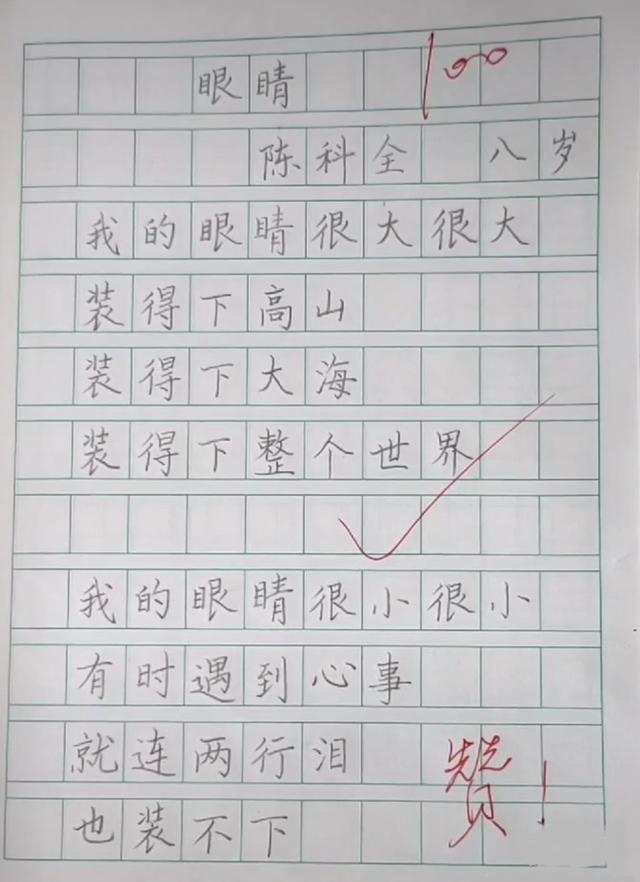 眼睛 100
陈科全 八岁
我的眼睛很大很大
装得下高山
装得下大海
装得下整个世界
我的眼睛很小很小
有时遇到心事
就连两行泪
也装不下
赞！